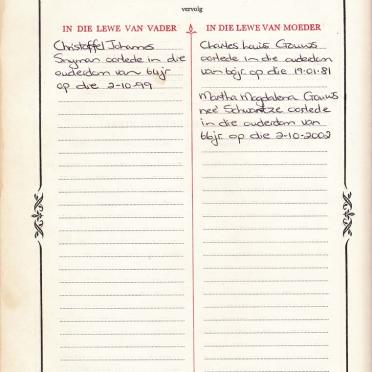 vervolg
IN DIE LEWE VAN VADER
Christoffel Johannes
Snyman oorlede in die
ouderdom van 64jr
op die 2-10-99
IN DIE LEWE VAN MOEDER
Charles Louis Gouws
oorlede in die ouderdom
van 60jr op die 19.01.81
Martha Magdalena Gouws
neé Schwartze oorlede
in die ouderdom van
66jr op die 2-10-2002